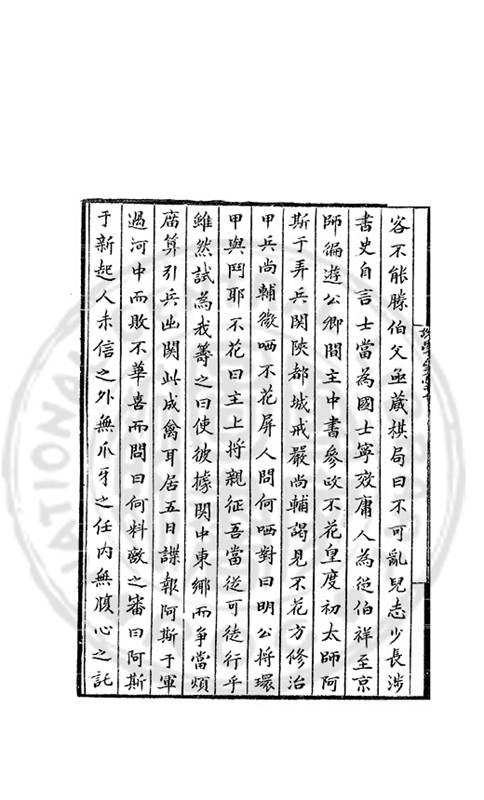 容不能勝伯父亟藏棋局曰不可亂兒志少長涉
書史自言士當為國士寧效庸人為從伯祥至京
師徧遊公卿間主中書參政不花皇度初太師阿
斯于弄兵関陝都城戒嚴尚輔謁見不花方修治
甲兵尚輔微哂不花屏人問何哂對曰明公將環
甲與鬥耶不花曰主上將親征吾當從可徒行乎
雖然試為我籌之曰使彼據関中東鄉而爭當煩
廟算引兵出関此成禽耳居五日諜報阿斯于軍
過河中而敗不華喜而問曰何料敵之審曰阿斯
于新起人未信之外無爪牙之任內無腹心之託
NATIONAL